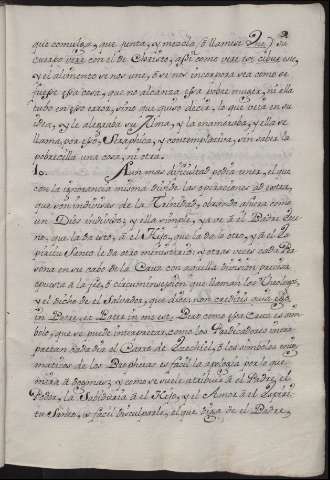 que comulga, que junta, y mezcla, ó llamase su
cuerpo vere con el de Christo, assi como vere est cibus est,
y el alimento se nos une, ó se nos incorpora sea como se
fuesse essa cosa, que no alcanza essa pobre muger, ni ella
tubo en esso error, sino que quiso decir, lo que veia en su
Idea, y le alegraba su Alma, y la enamoraba, y ella se
llama por esso, Seraphica, y contemplativa, sin saber la
pobrecilla una cosa, ni otra.
10. Aun mas dificultad podia tener, el que
con la ignorancia misma divide las operaciones ad extra,
que son indivisas de la Trinidad, obrando afuera como
un Dios indiviso; y ella simple, ya ve á el Padre
no, que la da esto, á el Hijo, que la da lo otro, y á el
Spiritu Santo le da otro ministerio; y otras veces cada Per
sona en su cabo de la Cruz con aquella division precisa
opuesta á la fee, ó circuminsession que llaman los Theologos,
y el dicho de el Salvador, que dice: non creditis quia ego
in Patre, et Pater in me est. Pero como essa Cruz es sim
bolo, que se puede interpretar, como los Predicadores inter
pretan cada dia el Carro de Ezechiel, ó los simbolos enig
maticos de los Prophetas es facil la apologia por lo que
mira á dogmas; y como se suele atribuir á el Padre, el
Poder, la Sabiduria á el Hijo, y el Amor á el Espiri
tu Santo, es facil disculparla, el que diga de el Padre,